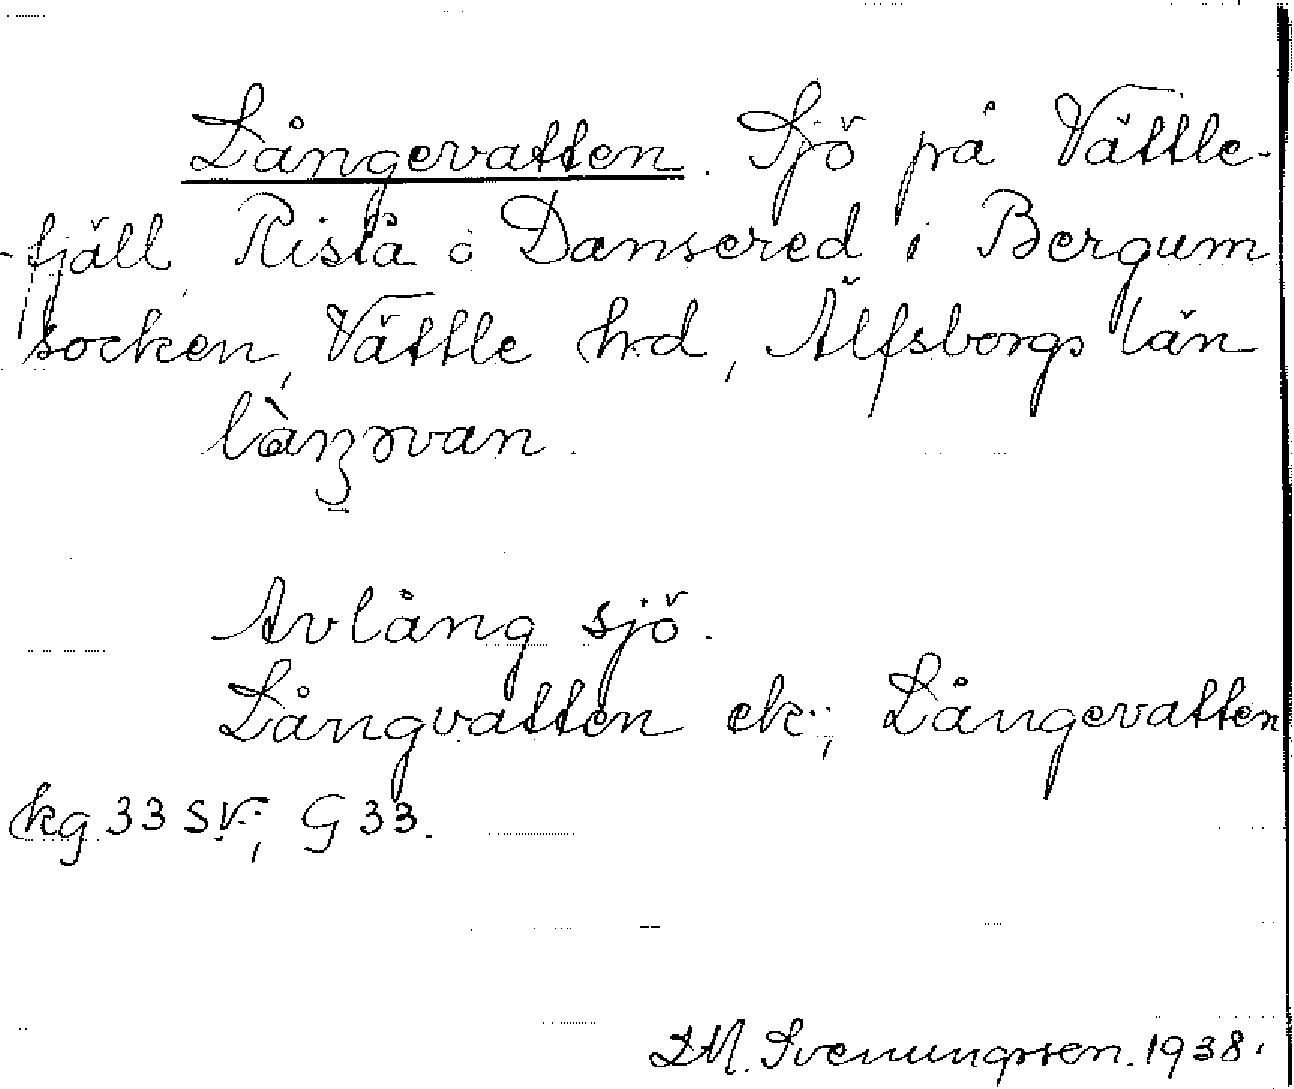 Långevatten. Sjö på Vättle-
-fjäll, Ristå o Dansered i Bergum
socken, Vättle hd, Älfsborgs län
Avlång sjö.
Långvatten ek.; Långevatten
kg 33 SV.; G 33.
Svenungsson. 1938.